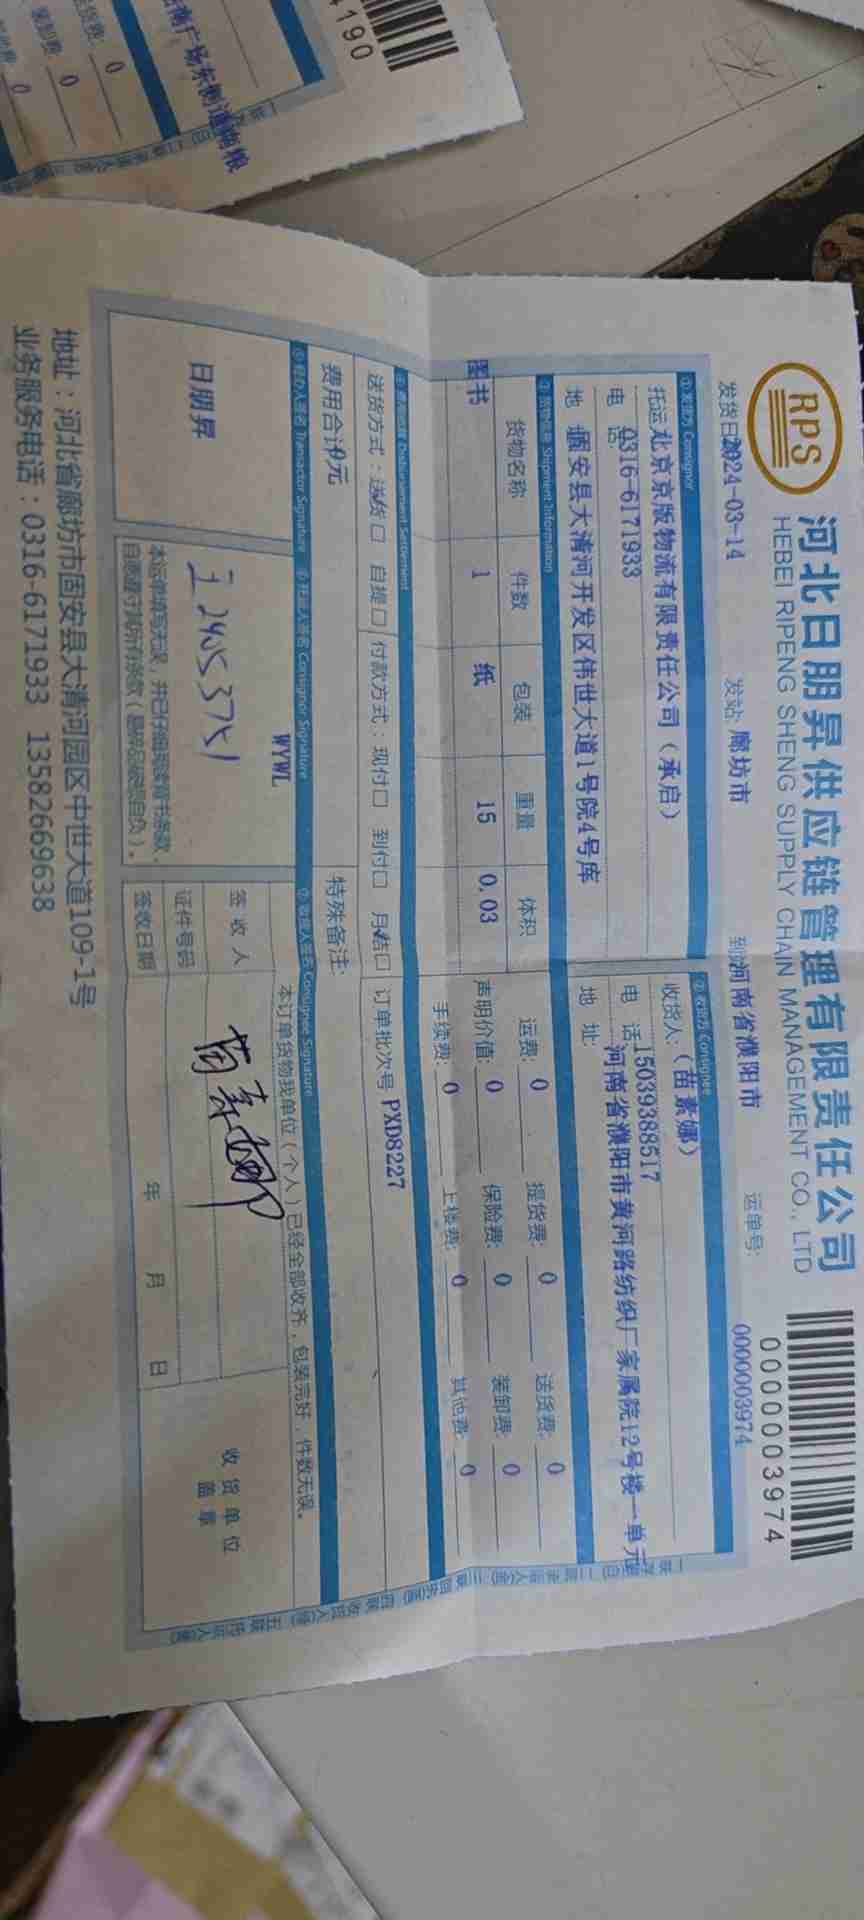 4190
南广场东侧道南根
0
0
0
RPS
河北日朋昇供应链管理有限责任公司
HEBEI RIPENG SHENG SUPPLY CHAIN MANAGEMENT CO., LTD
0000003974
发货日 2024-03-14 发站: 廊坊市 到站 河南省濮阳市 运单号: 0000003974
①发货方 Consignor ②收货方 Consignee
托运 北京京版物流有限责任公司（承启） 收货人: （苗素娜）
电话 0316-6171933 电 话 15039388517
地 固安县大清河开发区伟世大道1号院4号库 地 址: 河南省濮阳市黄河路纺织厂家属院12号楼一单元
③货物信息 Shipment Information
货物名称 件数 包装 重量 体积 运费: 0 提货费: 0 送货费: 0
图书 1 纸 15 0.03 声明价值: 0 保险费: 0 装卸费: 0
手续费: 0 上楼费: 0 其他费: 0
Disbursement Settlement
送货方式：送货□ 自提□ 付款方式：现付□ 到付□ 月结□ 订单批次号 PXD8227
费用合计0元 特殊备注:
⑤经办人签名 Transactor Signature ⑥托运人签名 Consignor Signature ⑦收货人签名 Consignee Signature
WYWL 本订单货物我单位（个人）已经全部收齐，包装完好，件数无误。
日朋昇 24053751 签收人 苗素娜 收货单位盖章
证件号码
签收日期 年 月 日
地址：河北省廊坊市固安县大清河园区中世大道109-1号
业务服务电话：0316-6171933 13582669638